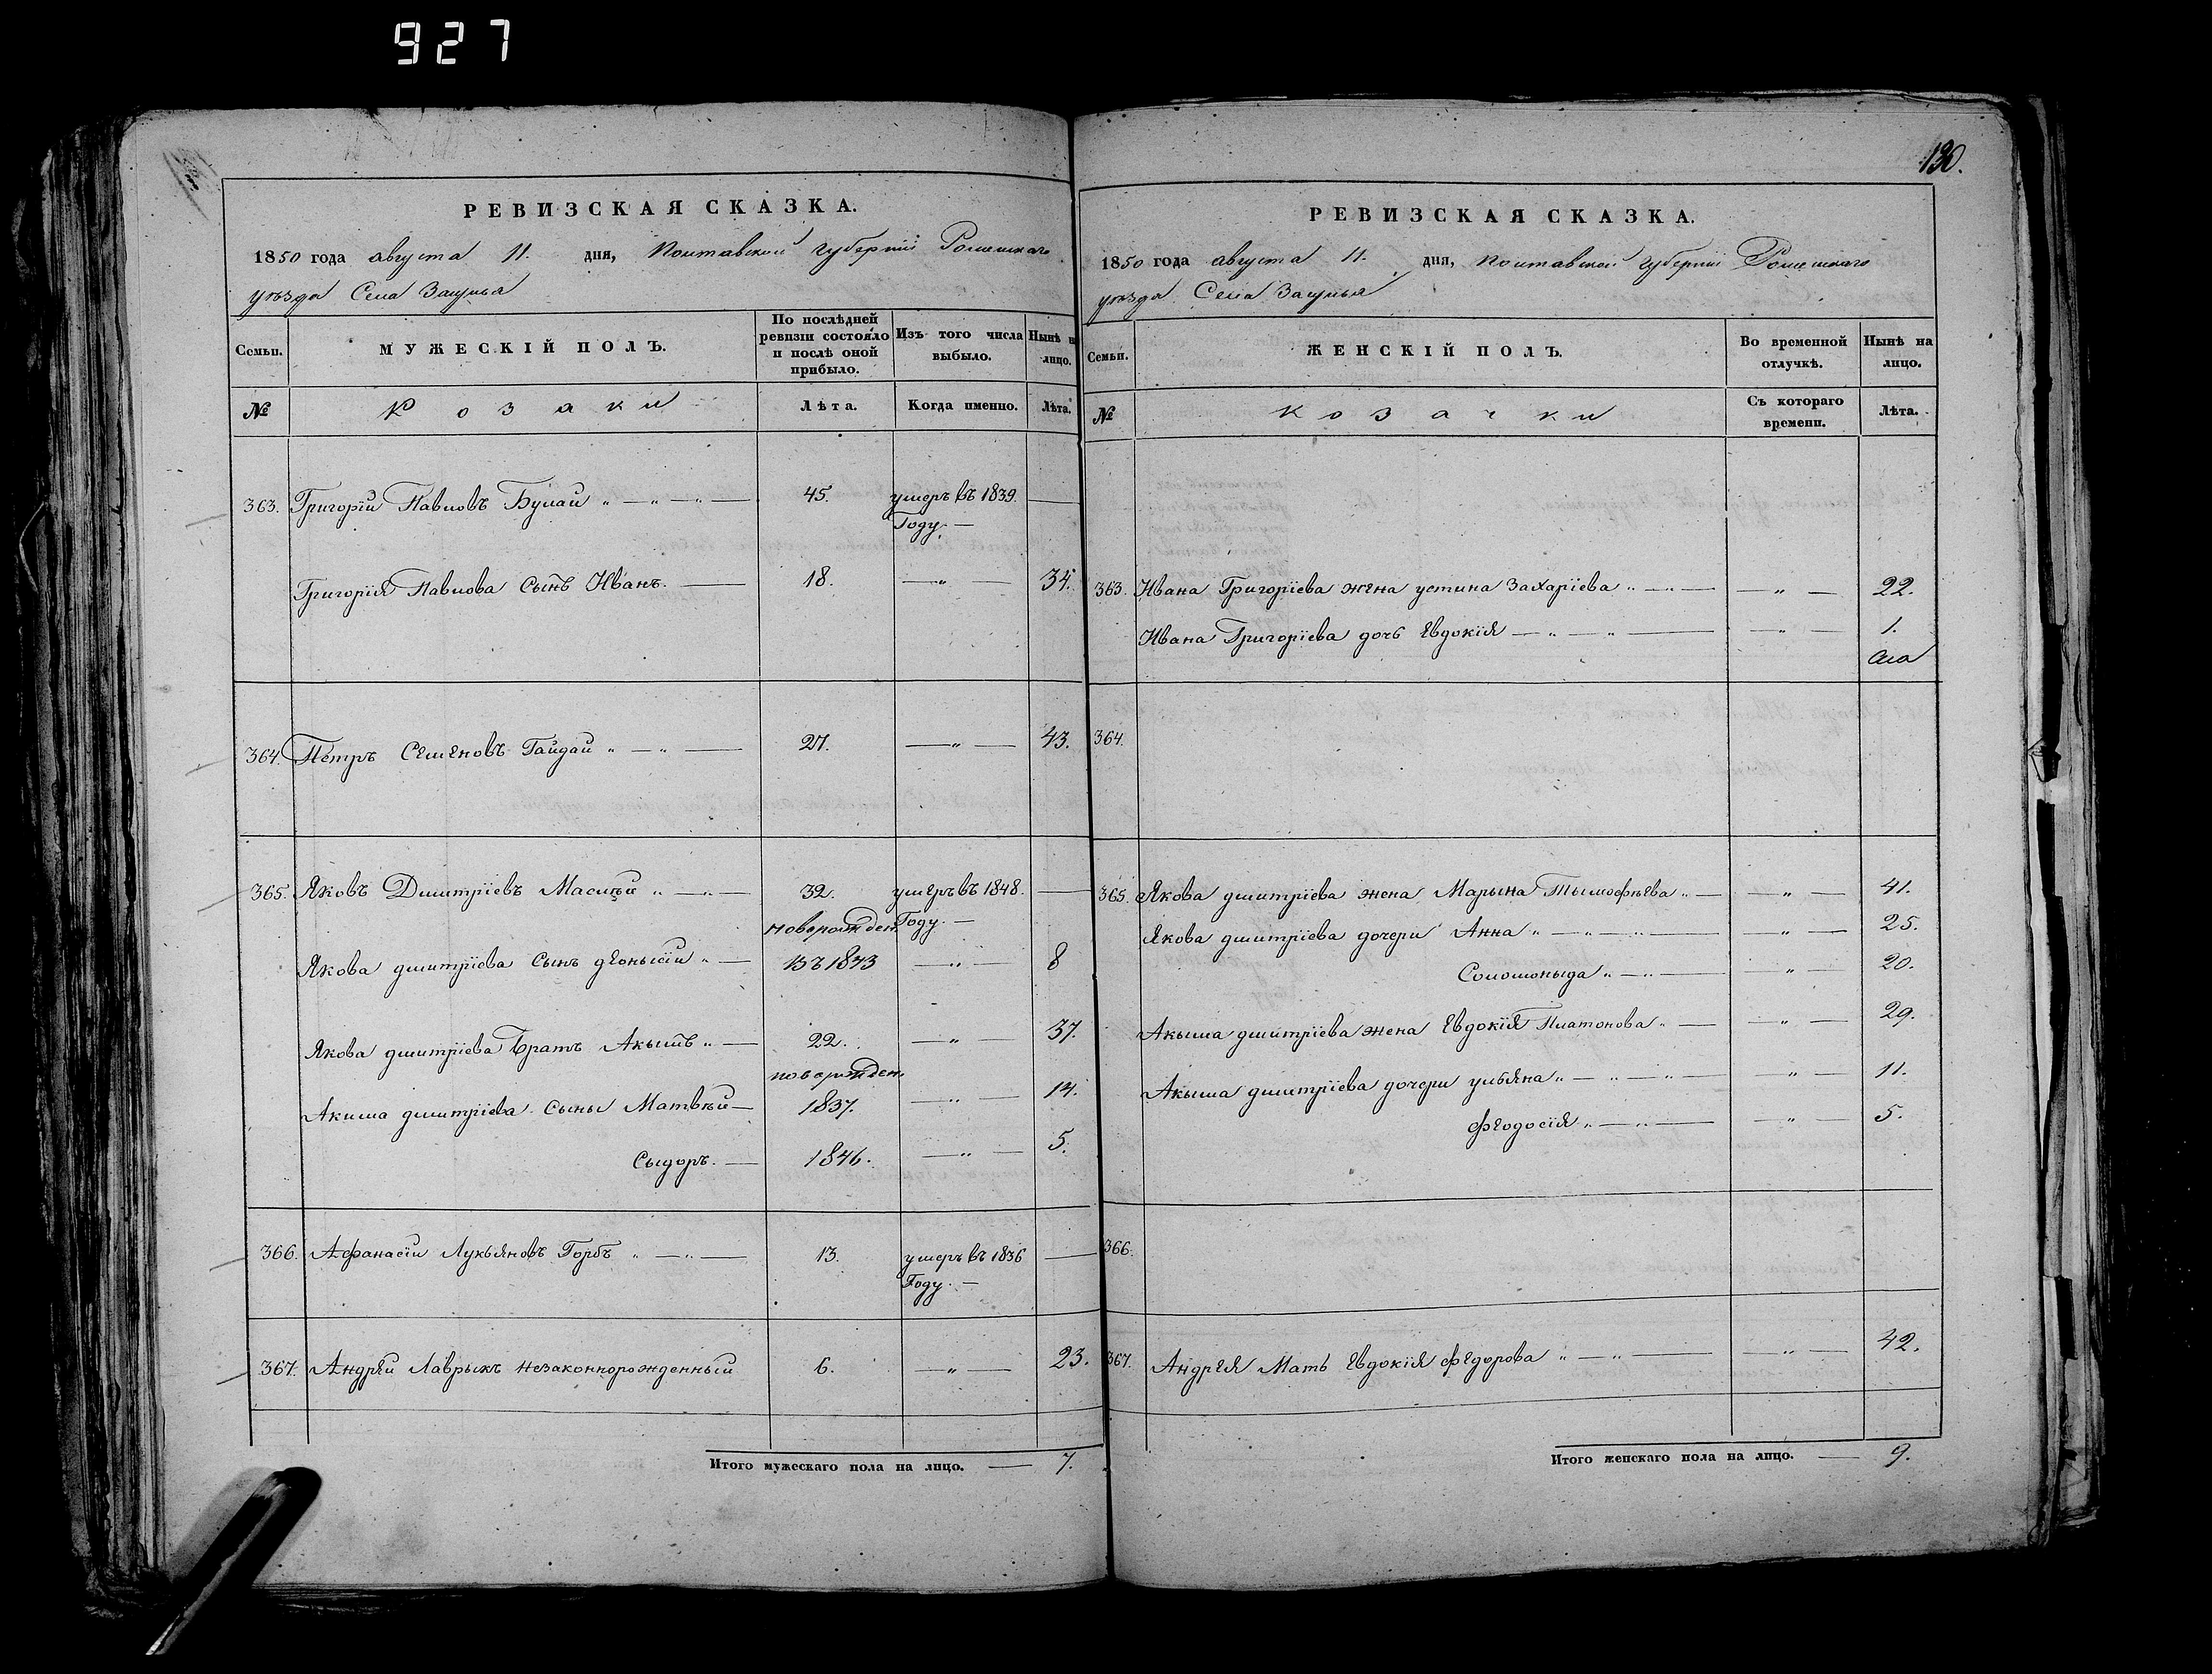 927
РЕВИЗСКАЯ СКАЗКА.
1850 года августа 11. дня, Полтавской Губернии Роменского
уѣзда Села Засулья
Семьи.
МУЖЕСКІЙ ПОЛЪ.
По послѣдней
ревизіи состояло
и послѣ оной
прибыло.
Изъ того числа
выбыло.
Нынѣ н
лицо.
№
Козаки
Лѣта.
Когда именно.
Лѣта.
363. Григорій Павловъ Булай 45. умеръ въ 1839.
Году.
Григорія Павлова Сынъ Иванъ. 18. 34.
364. Петръ Семеновъ Гайдай 27. 43.
365. Яковъ Дмитріевъ 32. умеръ въ 1848.
новорожден Году.
Якова дмитріева Сынъ деонысій въ 1843 8
Якова дмитріева Братъ Акымъ 22. 37.
новорожден.
Акима дмитріева Сыны Матвѣй 1837. 14.
Сыдоръ. 1846. 5.
366. Афанасій Лукьяновъ Горбъ 13. умеръ въ 1836
Году.
367. Андрей Лаврыкъ незаконнорожденный 6. 23.
Итого мужескаго пола на лицо. 7.
130.
РЕВИЗСКАЯ СКАЗКА.
1850 года августа 11. дня, Полтавской Губерніи Роменского
уѣзда Села Засулья
Семьи.
ЖЕНСКІЙ ПОЛЪ.
Во временной
отлучкѣ.
Нынѣ на
лицо.
№
Козачки
Съ котораго
времени.
Лѣта.
363. Ивана Григоріева жена устина Захаріева 22.
Ивана Григоріева дочь Евдокія 1.
364.
365. Якова дмитріева жена Марына Тымофѣева 41.
Якова дмитріева дочери Анна 25.
Соломоныда 20.
Акыма дмитріева жена Евдокія Платонова 29.
Акыма дмитріева дочери ульяна 11.
Феодосія 5.
366.
367. Андрея Мать Евдокія Федорова 42.
Итого женскаго пола на лицо. 9.